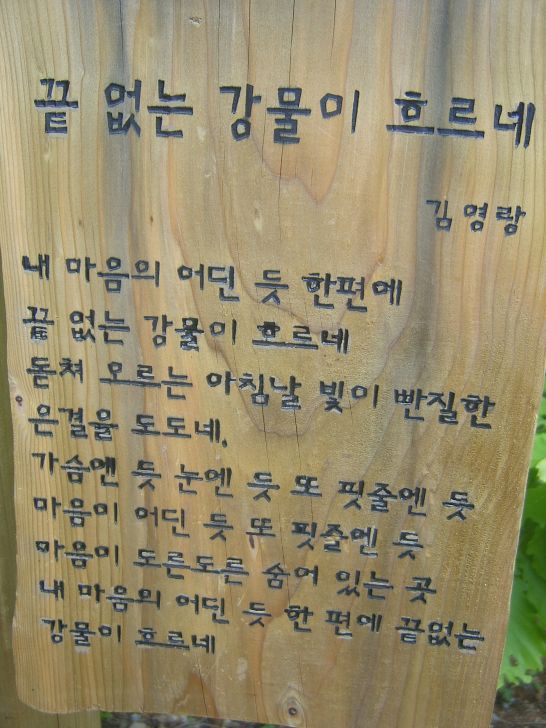 끝 없는 강물이 흐르네
김영랑
내 마음의 어딘 듯 한편에
끝 없는 강물이 흐르네
돋쳐 오르는 아침날 빛이 빤질한
은결을 도도네.
가슴엔 듯 눈엔 듯 또 핏줄엔 듯
마음이 어딘 듯 또 핏줄엔 듯
마음이 도른도른 숨어 있는 곳
내 마음의 어딘 듯 한 편에 끝없는
강물이 흐르네